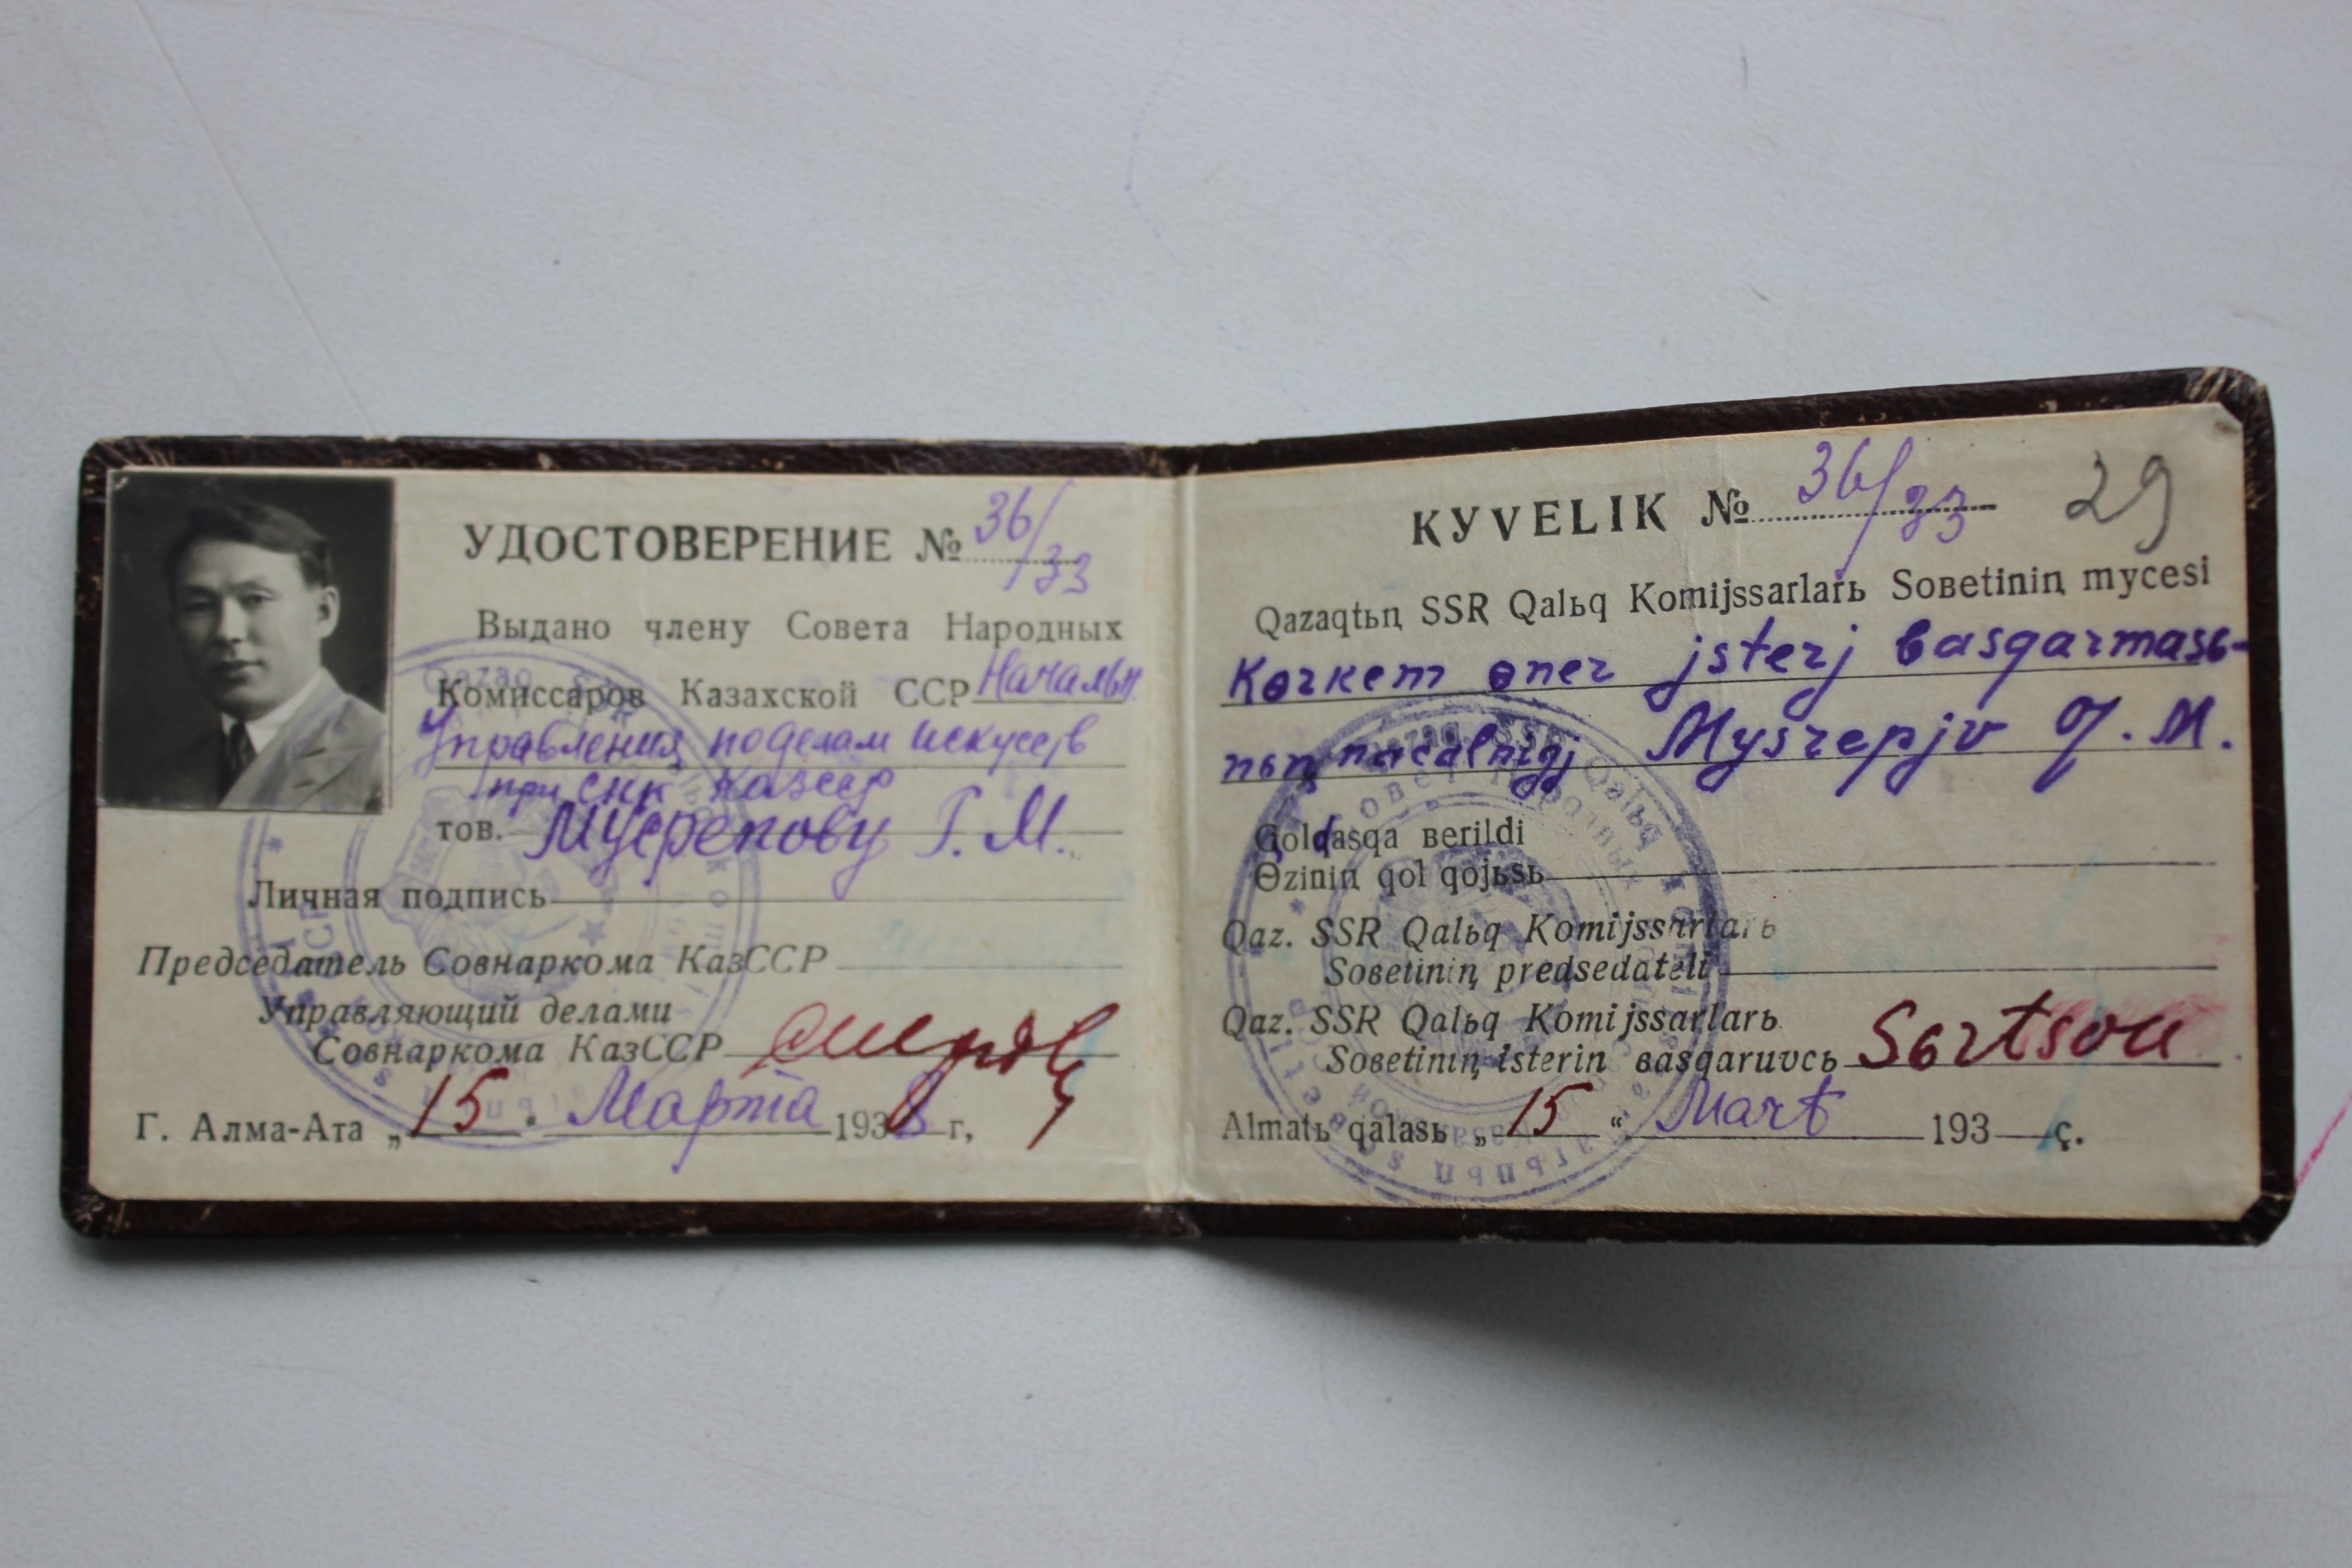 УДОСТОВЕРЕНИЕ № 36/33
Выдано члену Совета Народных
Комиссаров Казахской ССР Начальн.
Управления по делам искусств
при СНК КазССР
тов. Мусрепову Г. М.
Личная подпись
Председатель Совнаркома КазССР
Управляющий делами
Совнаркома КазССР
Г. Алма-Ата „15. Марта 1938 г,
KYVELIK № 36/33 29
Qazaqtьꞑ SSR Qalьq Komijssarlarь Sовetiniꞑ mycesi
Kөrkem өner jsterj basqarmasь-
nьꞑ nacalnigj Mysrepjv Ƣ. M.
Qoldasqa вerildi
Өziniꞑ qol qojьsь
Qaz. SSR Qalьq Komijssarlarь
Sовetiniꞑ predsedateli
Qaz. SSR Qalьq Komijssarlarь
Sовetiniꞑ isterin вasqaruvcь
Almatь qalasь „15“ Mart 193 ç.